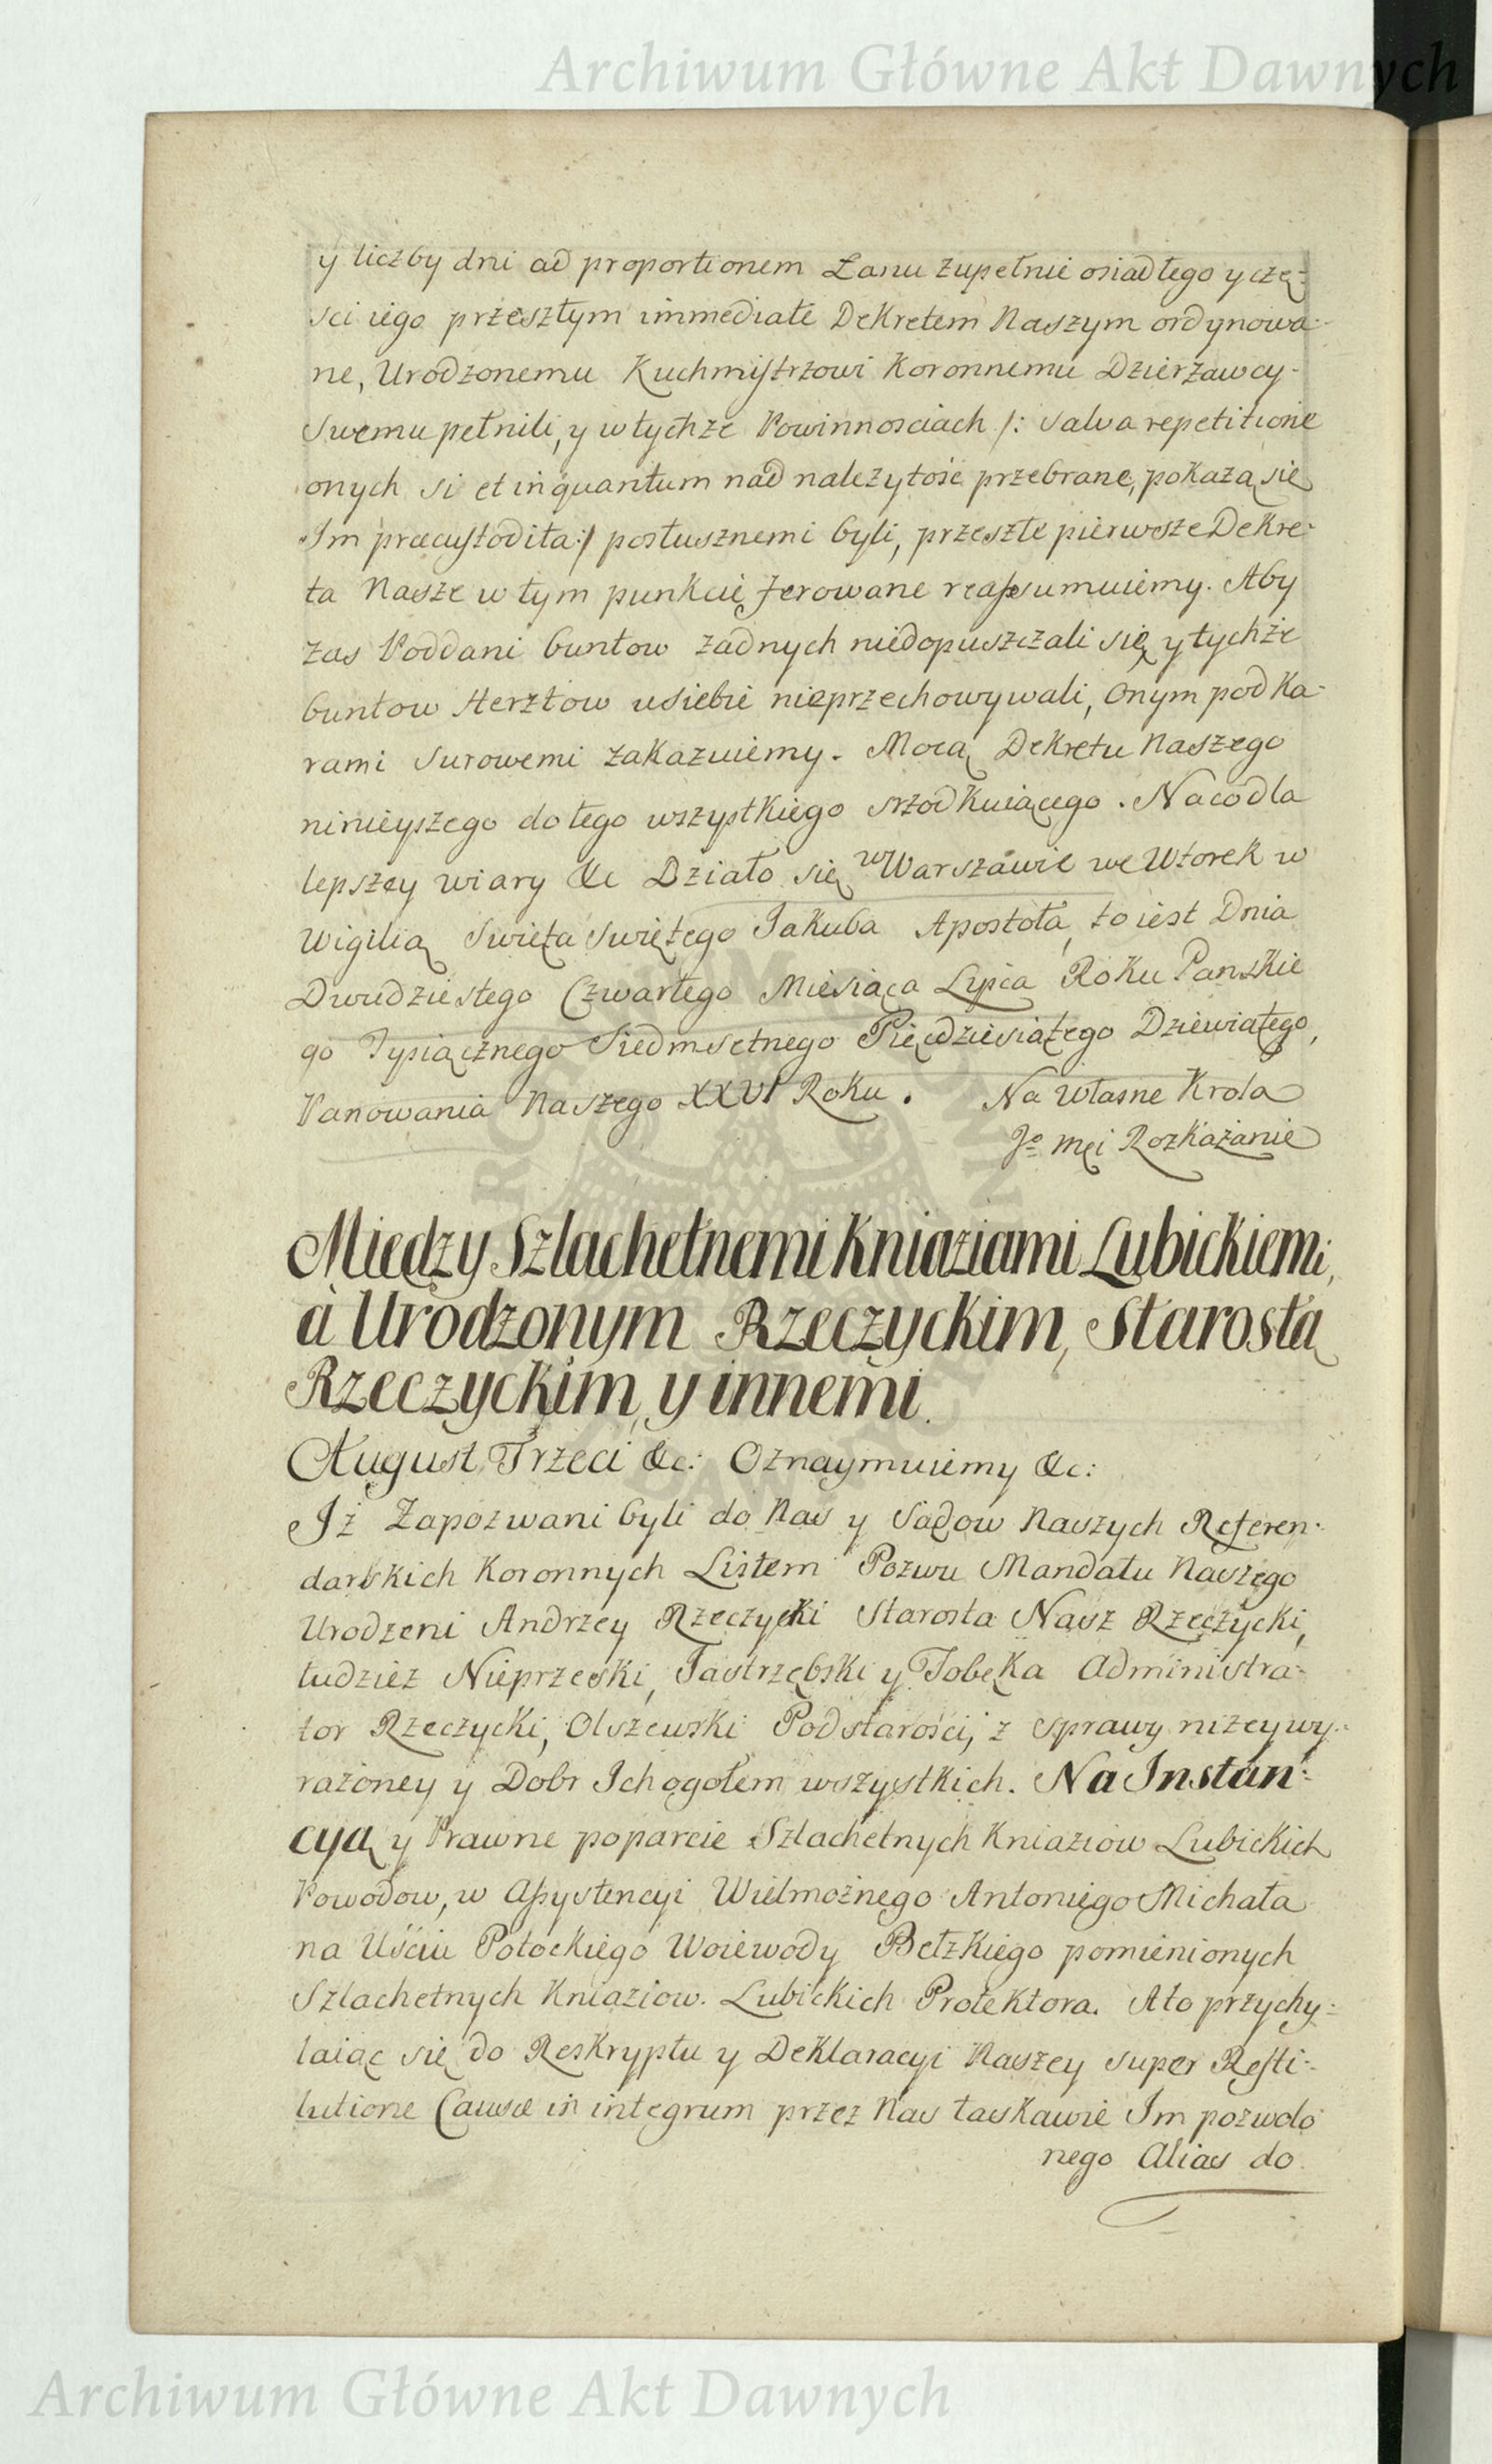 Archiwum Główne Akt Dawnych
y liczby dni ad proportionem Łanu zupełnie osiadłego y czę-
sci iego przeszłym immediate Dekretem Naszym ordynowa-
ne, Urodzonemu Kuchmistrzowi Koronnemu Dzierżawcy
Swemu pełnili, y w tychże Powinnosciach /: salva repetitione
onych si et inquantum nad należytośc przebrane, pokażą się
Im præcustodita :/ posłusznemi byli, przeszłe pierwsze Dekre-
ta Nasze w tym punkcie ferowane reassumuiemy. Aby
zas Poddani buntow żadnych niedopuszczali się y tychże
buntow Herztow u siebie nieprzechowywali, Onym pod Ka-
rami Surowemi zakazuiemy. Mocą Dekretu Naszego
ninieyszego do tego wszystkiego srzodkuiącego. Na co dla
lepszey wiary &c Działo się w Warszawie we Wtorek w
Wigilią Swięta Swiętego Jakuba Apostoła, to iest Dnia
Dwudziestego Czwartego Miesiąca Lipca Roku Panskie
go Tysiącznego Siedmsetnego Pięcdziesiątego Dziewiątego,
Panowania Naszego XXVI Roku. Na Własne Krola
Jo Mci Rozkazanie
Między Szlachetnemi Kniaziami Lubickiemi,
a Urodzonym Rzeczyckim, Starostą
Rzeczyckim, y innemi.
August Trzeci &c: Oznaymuiemy &c:
Iż Zapozwani byli do Nas y Sądow Naszych Referen-
darskich Koronnych Listem Pozwu Mandatu Naszego
Urodzeni Andrzey Rzeczycki Starosta Nasz Rzeczycki,
tudzież Nieprzeski, Jastrzębski y Tobęka Administra-
tor Rzeczycki, Olszewski Podstarosci, z sprawy niżey wy-
rażoney y Dobr Ich ogołem wszystkich. Na Instan-
cyą y Prawne poparcie Szlachetnych Kniaziow Lubickich
Powodow, w Assystencyi Wielmożnego Antoniego Michała
na Uściu Potockiego Woiewody Bełzkiego pomienionych
Szlachetnych Kniaziow Lubickich Protektora. A to przychy-
laiąc się do Reskryptu y Deklaracyi Naszey super Resti-
tutione Causæ in integrum przez Nas łaskawie Im pozwolo
nego Alias do
Archiwum Główne Akt Dawnych